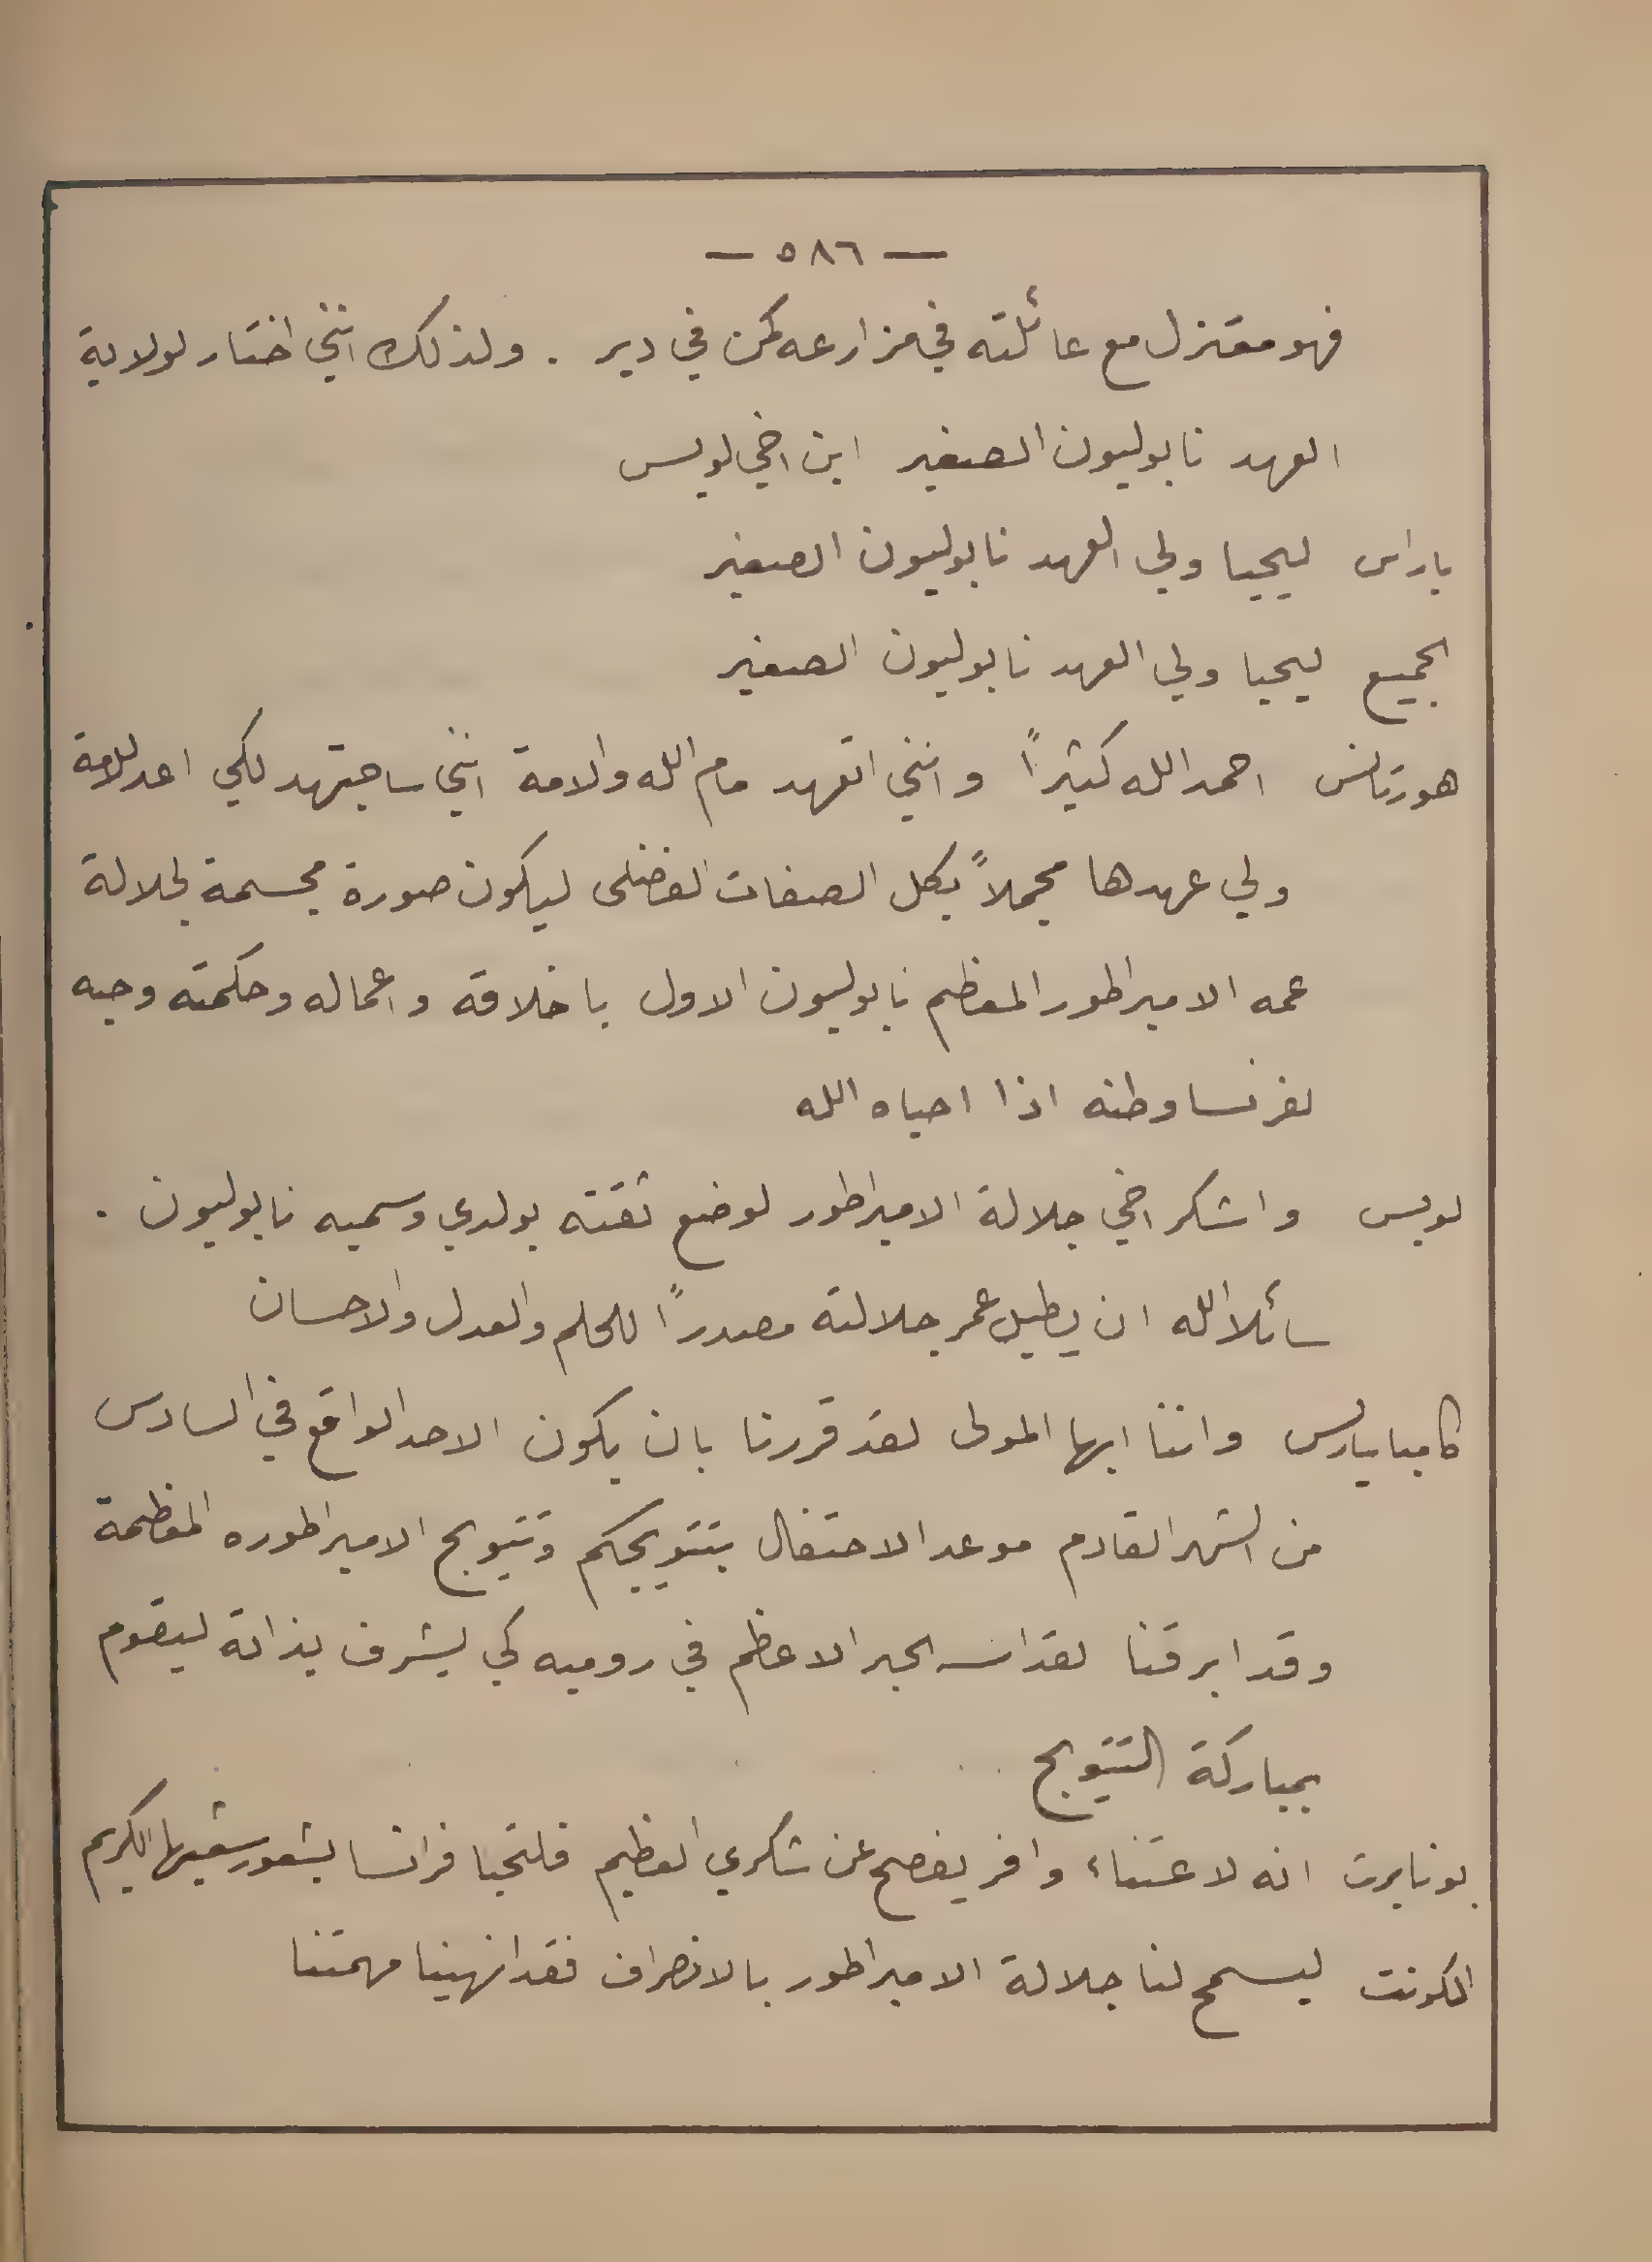 — ٥٨٦ —
فهو معتزل مع عائلته في مزارعه كمن في دير . ولذلك انني اختار لولاية
العهد نابوليون الصغير ابن اخي لويس
باراس ليحيا ولي العهد نابوليون الصغير
الجميع ليحيا ولي العهد نابوليون الصغير
هورتانس احمد الله كثيراً وانني اتعهد مام الله والامة انني ساجتهد لكي اعد للامة
ولي عهدها مجملاً بكل الصفات الفضلى ليكون صورة مجسمة لجلالة
عمه الامبراطور المعظم نابوليون الاول باخلاقه واعماله وحكمته وحبه
لفرنسا وطنه اذا احياه الله
لويس واشكر اخي جلالة الامبراطور لوضع ثقته بولدي وسميه نابوليون .
سائلا الله ان يطيل عمر جلالته مصدراً للحلم والعدل والاحسان
كامبابيارس واننا ايها المولى لقد قررنا بان يكون الاحد الواقع في السادس
من الشهر القادم موعد الاحتفال بتتويجكم وتتويج الامبراطوره المعظمة
وقد ابرقنا لقداسه الحبر الاعظم في روميه كي يشرف بذاته ليقوم
بمباركة التتويج
بونابرت انه لاعتناء وافر يفصح عن شكري العظيم فلتحيا فرانسا بشعور شعبها الكريم
الكونت ليسمح لنا جلالة الامبراطور بالانصراف فقد انهينا مهمتنا